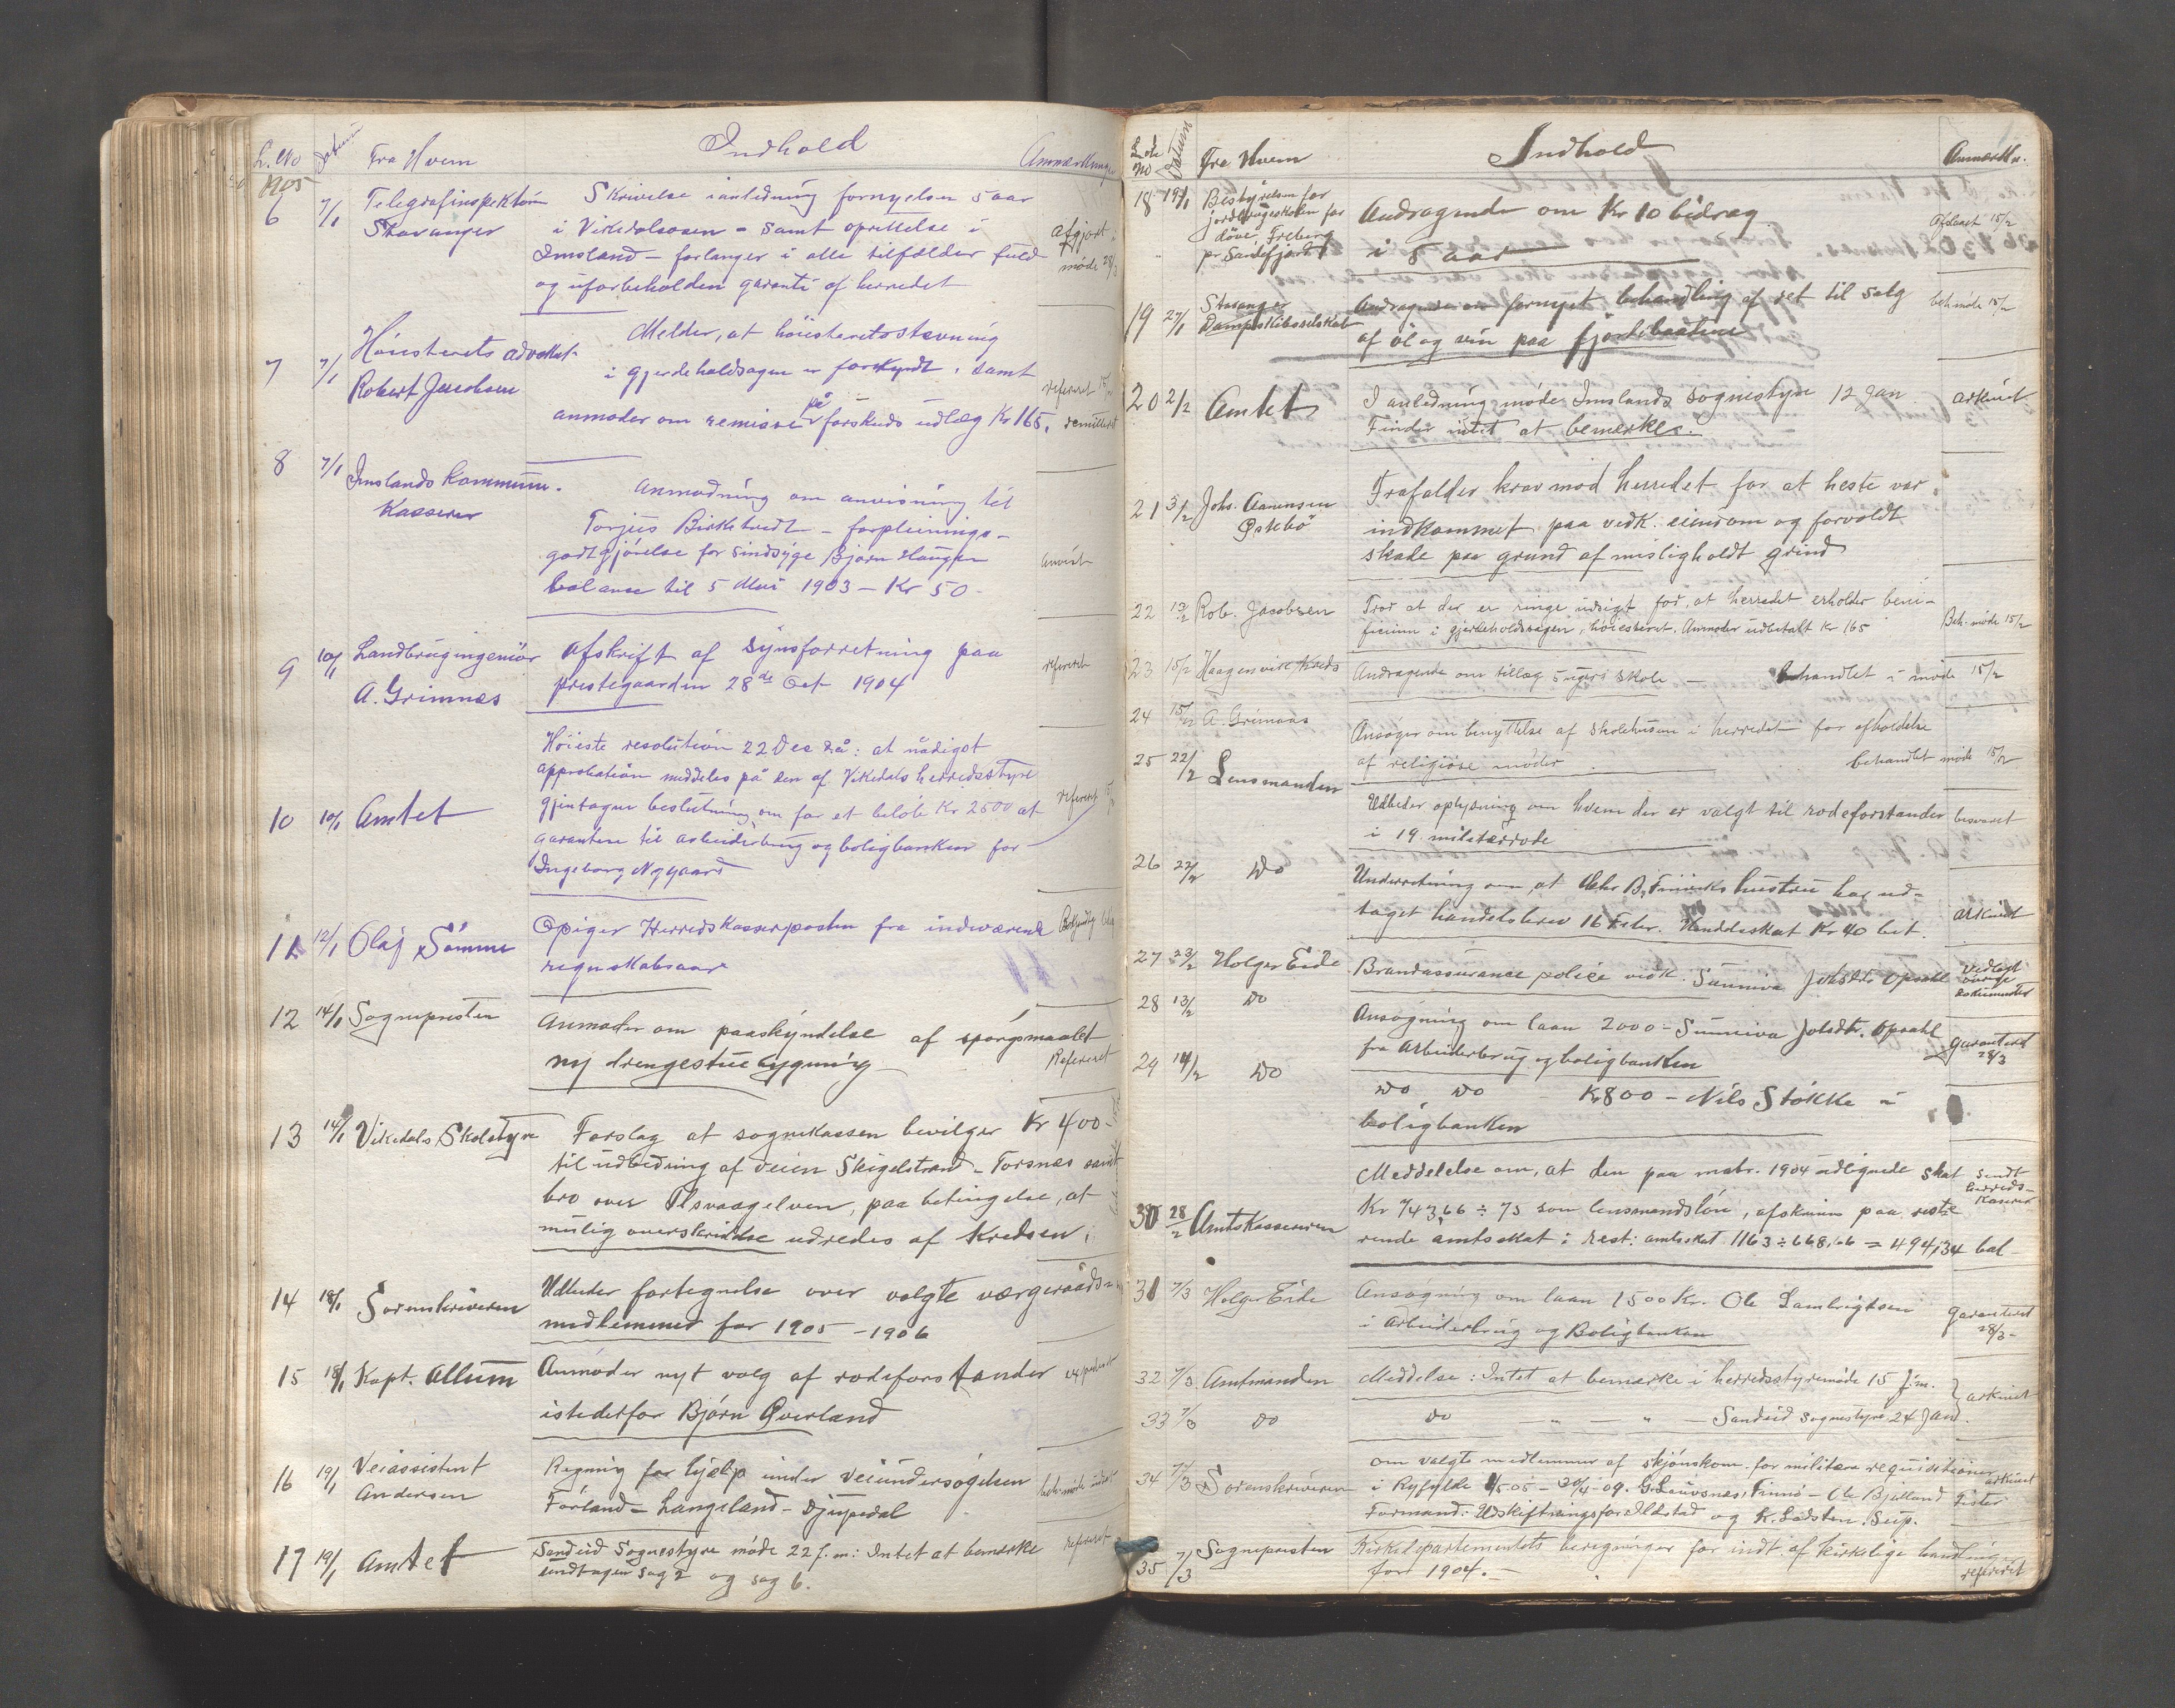 L. No Datum Fra Hvem Indhold Anmærkninger
1905
6 7/1 Telegrafinspektøren Stavanger
Skrivelse ianledning fornyelsen 5 aar
i Vikedalsosen - samt oprettelse i
Imsland - forlanger i alle tilfælder fuld
og uforbeholden garanti af herredet
afgjort i
møde 28/3
7 7/1 Høiesterets advokat
Robert Jacobsen
Melder, at høiesteretsstevning
i gjerdeholdsagen er forkyndt, samt
anmoder om remisse på forskuds udlæg Kr 165.
refereret 15/2
remitteret
8 7/1 Imslands Kommune-
Kasserer
Anmodning om anvisning til
Torjus Birkhredt - forpleinings-
godtgjørelse for sindsyge Bjørn Haugen
balance til 5 Mai 1903 - Kr 50 -
Anvist
9 10/1 Landbrugingeniør
A. Grimnes
Afskrift af Synsforretning paa
prestegaarden 28de Oct 1904
refereret
10 10/1 Amtet
Høieste resolution 22 Dec då: at nådigst
approbation meddeles på den af Vikedals herredsstyre
gjentagne beslutning om for et beløb Kr 2500 at
garantere til Arbeiderbrug og boligbanken for
Ingeborg Nygaard
refereret 15/2
11 12/1 Olaf Sømme
Opsiger Herredskasserposten fra indværende
regnskabsaar
12 14/1 Sognepresten
Anmoder om paaskyndelse af spørgsmaalet
ny drengestuebygning
Refereret
13 14/1 Vikedals Skolestyre
Forslag at sognekassen bevilger Kr 400-
til udbedring af veien Skigelstrand - Torsnes samt
bro over Ilsvaagelven, paa betingelse, at
mulig overskridelse udredes af Kredsen
14 18/1 Sorenskriveren
Udbeder fortegnelse over valgte værgeraads-
medlemmer for 1905 - 1906
15 18/1 Kapt. Allum
Anmoder nyt valg af rodeforstander
istedetfor Bjørn Øverland
expederet
16 19/1 Veiassistent
Andersen
Regning for hjælp under veiundersøgelsen
Førland - Langeland - Djupedal
17 19/1 Amtet
Sandeid Sognestyre møde 22 f.m: Intet at bemerke
undtagen sag 2 og sag 6.
refereret
Løb No Datum Fra Hvem Indhold Anmærkn.
18 19/1 Bestyrelsen for
jordbrugsskolen for
døve, Freberg
pr Sandefjord
Andragende om Kr 10 bidrag
i 5 aar
Afslaaet 15/2
19 27/1 Stavanger
Dampskibsselskab
Andragende om fornyet behandling af ret til salg
af øl og vin paa fjordbaatene
beh. møde 15/2
20 2/2 Amtet
I anledning møde Imslands Sognestyre 12 Jan
Finder intet at bemerke.
arkivet
21 3/2 Johs. Aamundsen
Østebø
Frafalder krav mod herredet for at heste var
indkommet paa vedk. eiendom og forvoldt
skade paa grund af misligholdt grind
22 13/2 Rob. Jacobsen
Tror at der er ringe udsigt for, at herredet erholder beni-
ficium i gjerdeholdssagen, høiesteret. Anmoder udbetalt Kr 165
Beh. møde 15/2
23 15/2 Haagenvik Kreds
Andragende om tillæg 5 ugers skole - behandlet i møde 15/2
24 15/2 A. Grimnes
Ansøger om benyttelse af skolehusene i herredet for afholdelse
af religiøse møder
behandlet møde 15/2
25 22/2 Lensmanden
Udbeder oplysning om hvem der er valgt til rodeforstander
i 19. militærrode
besvaret
26 22/2 Do
Underretning om, at Chr. B. hustru har ud-
taget handelsbrev 16 Febr. Kr 40 bet.
arkivet
27 23/2 Holger Eide
Brandassurance police vedk. Sunniva Johsdtr Opsahl
vedlagt
øvrige
dokumenter
28 13/2 Do
Ansøgning om laan 2000 - Sunniva Johsdtr. Opsahl
fra Arbeiderbrug og boligbanken
garanteret
28/3
29 14/2 Do
Do Do Kr 800 - Nils Stokke i
boligbanken
30 28/2 Amtskassereren
Meddelelse om, at den paa matr. 1904 udlignede skat
Kr 743,66 ÷ 75 som lensmandsløn, afskrives paa reste-
rende amtsskat; rest: amtsskat 1163 ÷ 668,66 = 494,34 bal-
sendt
herreds-
kasserer
31 7/3 Holger Eide
Ansøgning om laan 1500 Kr. Ole Lambrigtsen
i Arbeiderbrug og Boligbanken
garanteret
28/3 -
32 7/3 Amtmanden
Meddelse: Intet at bemerke i herredsstyremøde 15 Jan.
33 7/3 Do
Do " " - Sandeid Sognestyre 24 Jan.
arkivet
34 7/3 Sorenskriveren
om valgte medlemmer af skjønskom. for militære requisitioner
i Ryfylke 1/5 05 - 30/4 - 09. G. Lauvsnes, Finnø - Ole Bjelland Fister
Formand: Udskiftningsfor. Aldstad og K. Ladsten. Sup.
arkivet
35 7/3 Sognepresten
Kirkedepartementets beregninger for indt. af kirkelige handlinger
for 1904. -
refereret